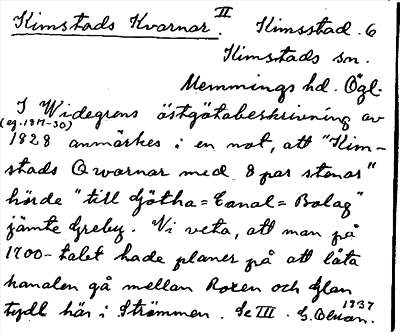 Kimstads Kvarnar. II Kimsstad. 6
Kimstads sn.
Memmings hd. Ögl.
I Widegrens östgötabeskrivning av
(eg. 1817-30)
1828 anmärkes i en not, att "Kim-
stads Qwarnar med 8 par stenar"
hörde "till Götha=Canal=Bolag"
jämte Greby. Vi veta, att man på
1700-talet hade planer på att låta
kanalen gå mellan Roxen och Glan
tydl här i Strömmen. Se III. G. Olsson. 1937